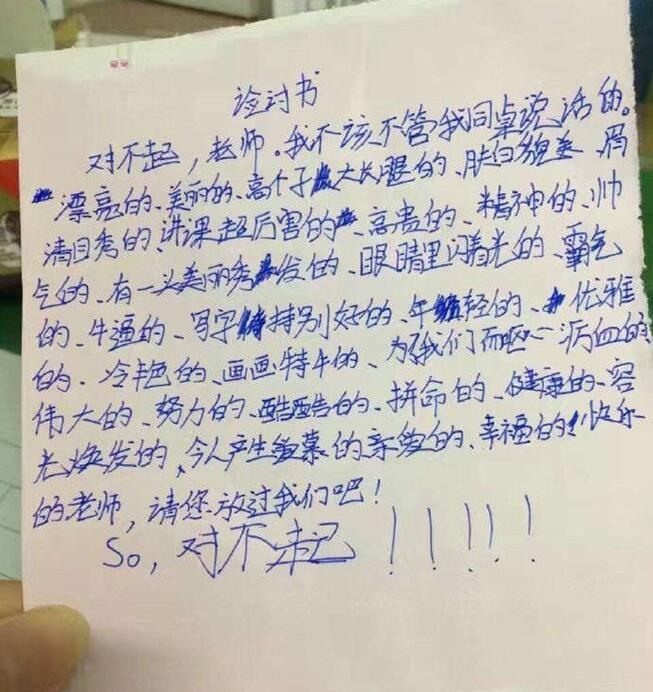 检讨书
对不起，老师。我不该不管我同桌说话的。
漂亮的、美丽的、高个子大长腿的、肤白貌美、眉
清目秀的、讲课超厉害的、高贵的、精神的、帅
气的、有一头美丽秀发的、眼睛里闪着光的、霸气
的、牛逼的、写字特别好的、年轻的、优雅
的、冷艳的、画画特牛的、为了我们而呕心沥血的
伟大的、努力的、酷酷的、拼命的、健康的、容
光焕发的、令人产生爱慕的亲爱的、幸福的、快乐
的老师，请您放过我们吧！
So，对不起！！！！！